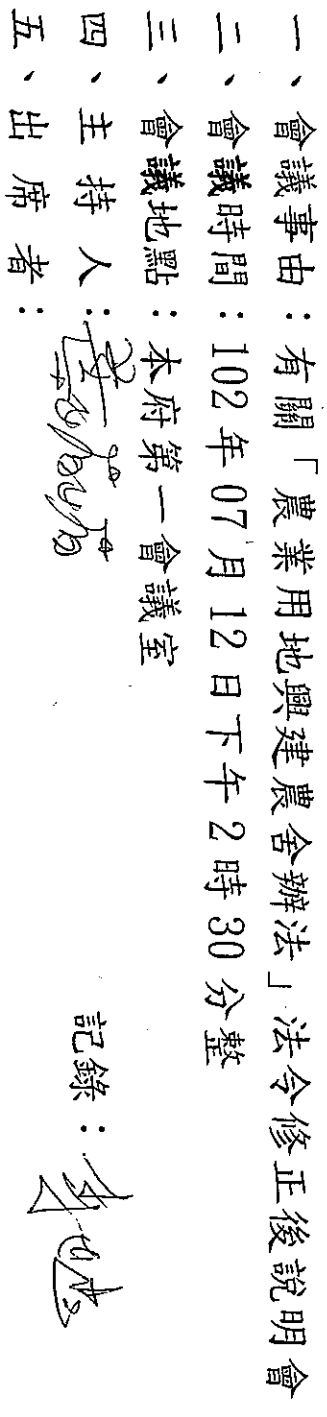 一、會議事由：有關「農業用地興建農舍辦法」法令修正後說明會
二、會議時間：102年07月12日下午2時30分整
三、會議地點：本府第一會議室
四、主持人：
記錄：
五、出席者：